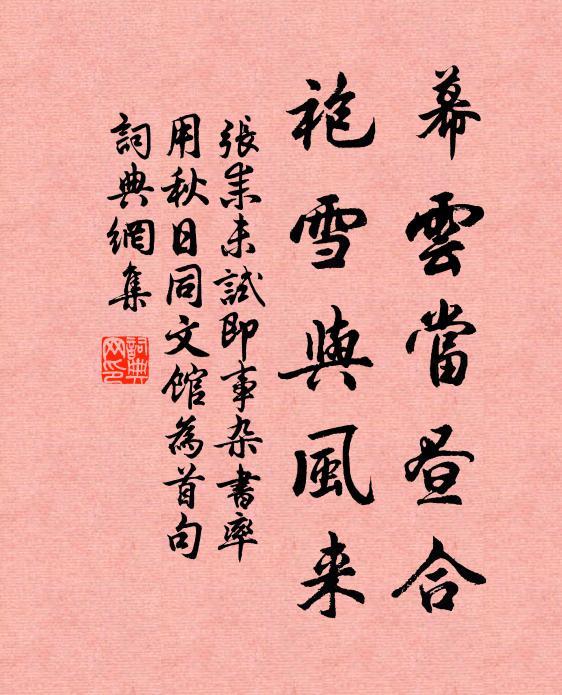 幕雲當昼合
袍雪與風来
張耒未試即事杂書率
用秋日同文館為首句
詞典網集
詞典网印